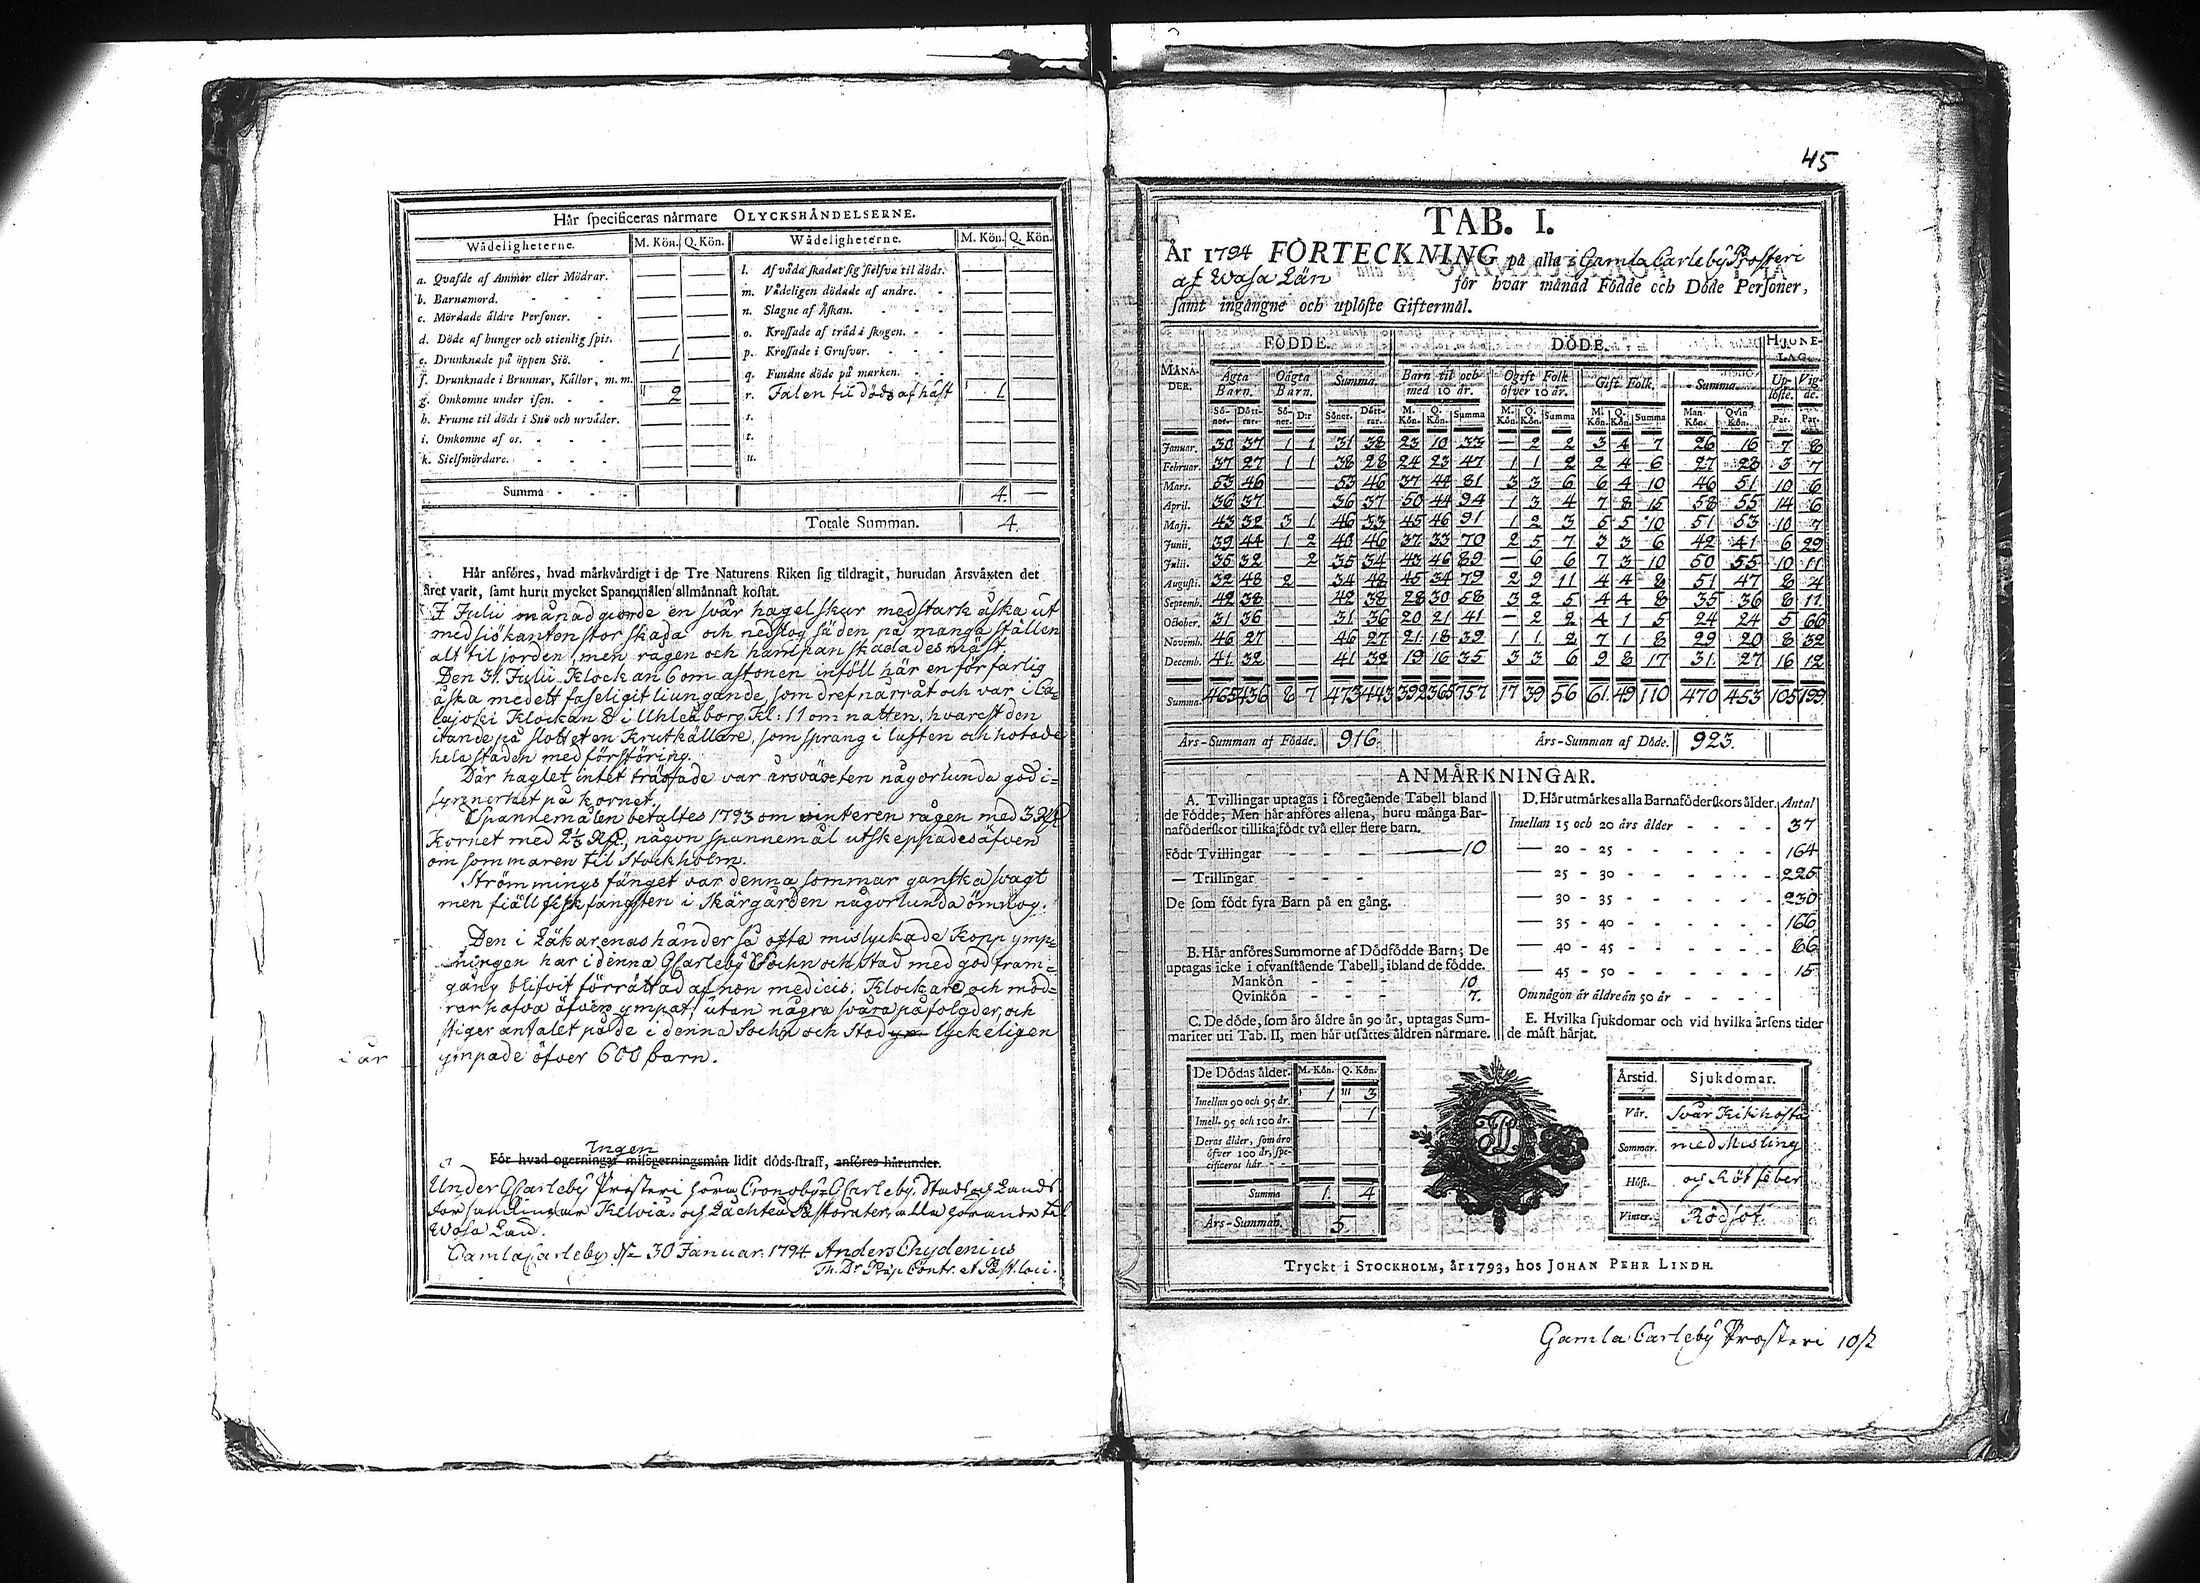 Här specificeras närmare OLYCKSHÄNDELSERNE.
Wådeligheterne. M. Kön. Q. Kön. Wådeligheterne. M. Kön. Q. Kön.
a. Qvafde af Ammor eller Mödrar. — — l. Af våda skadat sig sielfva til döds. — —
b. Barnamord. — — m. Vådeligen dödade af andre. — —
c. Mördade äldre Personer. — — n. Slagne af Åskan. — —
d. Döde af hunger och otienlig spis. — — o. Krossade af träd i skogen. — —
e. Drunknade på öppen Siö. 1 — p. Krossade i Grufvor. — —
f. Drunknade i Brunnar, Källor, m. m. — — q. Fundne döde på marken. — —
g. Omkomne under isen. 2 — r. Falen til döds af häst 1 —
h. Frusne til döds i Snö och urväder. — — s.
i. Omkomne af os. — — t.
k. Sielfmördare. — — u.
Summa 4. —
Totale Summan. 4.
Här anföres, hvad märkvärdigt i de Tre Naturens Riken sig tildragit, hurudan Årsväxten det
året varit, samt huru mycket Spanmålen allmännast kostat.
I Julii månad giorde en svår hagel skur med stark åska ut
med siökanten stor skada och nedslog säden på många ställen
alt til jorden, men rågen och hampan skadades mäst.
Den 31. Julii Klockan 6 om aftonen inföll här en förfarlig
åska med ett faseligit liungande, som dref norråt och var i Ca=
lajoki Klockan 8 i Uhleåborg Kl: 11 om natten, hvarest den
itände på slottet en Krutkällare, som sprang i luften och hotade
hela staden med förstöring.
Där haglet intet träffade var årsväxten någorlunda god i=
synnerhet på kornet.
Spannemålen betaltes 1793 om vinteren rågen med 3 Rd
Kornet med 2½ Rd, någon spannemål utskeppades äfven
om sommaren til Stockholm.
Strömmings fänget var denna sommar ganska svagt
men fiäll fisk fängsten i Skärgården någorlunda ömnog.
Den i Läkarenas händer så ofta mislyckade Kopp ymp=
ningen har i denna GCarleby Sochn och Stad med god fram=
gång blifvit förrättad af non medicis. Klockare och möd=
rar hafva äfven ympat utan några svåra påfolgder, och
stiger antalet på de i denna Sochn och Stad lyckeligen
i år
ympade öfver 600 barn.
Ingen
För hvad ogerningar missgerningsmän lidit döds-straff, anföres härunder.
Under GCarleby Prosteri höra Cronoby, GCarleby Stads och Lands
församlingar Kelviå och Lochteå Pastorater, alla hörande til
Wasa Län.
Gamla Carleby d. 30 Januar. 1794 Anders Chydenius
Th. Dr Præp Contr. et Past. loci.
45
TAB. I.
År 1794 FÖRTECKNING på alla i Gamla Carleby Prosteri
af Wasa Län för hvar månad Födde och Döde Personer,
samt ingångne och uplöste Giftermål.
FÖDDE. DÖDE. HJONE-LAG.
MÅNADER. Ägta Barn. Oägta Barn. Summa. Barn til och med 10 år. Ogift Folk öfver 10 år. Gift Folk. Summa. Uplöste. Vigde.
Söner. Döttrar. Söner. Dtr Söner. Döttrar. M. Kön. Q. Kön. Summa M. Kön. Q. Kön. Summa M. Kön. Q. Kön. Summa Man Kön. Qvin Kön. Par. Par.
Januar. 30 37 1 1 31 38 23 10 33 — 2 2 3 4 7 26 16 7 8
Februar. 37 27 1 1 38 28 24 23 47 1 1 2 2 4 6 27 28 3 7
Mars. 53 46 — — 53 46 37 44 81 3 3 6 6 4 10 46 51 10 6
April. 36 37 — — 36 37 50 44 94 1 3 4 7 8 15 58 55 14 6
Maji. 43 32 3 1 46 33 45 46 91 1 2 3 5 5 10 51 53 10 7
Junii. 39 44 1 2 40 46 37 33 70 2 5 7 3 3 6 42 41 6 29
Julii. 35 32 2 35 34 43 46 89 — 6 6 7 3 10 50 55 10 11
Augusti. 32 48 2 — 34 48 45 34 79 2 9 11 4 4 8 51 47 8 4
Septemb. 42 38 — — 42 38 28 30 58 3 2 5 4 4 8 35 36 8 11
October. 31 36 — — 31 36 20 21 41 — 2 2 4 1 5 24 24 5 66
Novemb. 46 27 — — 46 27 21 18 39 1 1 2 7 1 8 29 20 8 32
Decemb. 41 32 — — 41 32 19 16 35 3 3 6 9 8 17 31 27 16 12
Summa 465 436 8 7 473 443 392 365 757 17 39 56 61 49 110 470 453 105 199
Års-Summan af Födde. 916. Års-Summan af Döde. 923.
ANMÄRKNINGAR.
A. Tvillingar uptagas i föregående Tabell bland
de Födde; Men här anföres allena, huru många Bar-
naföderskor tillika födt två eller flere barn.
Födt Tvillingar 10
— Trillingar
De som födt fyra Barn på en gång.
B. Här anföres Summorne af Dödfödde Barn; De
uptagas icke i ofvanstående Tabell, ibland de födde.
Mankön 10
Qvinkön 7.
C. De döde, som äro äldre än 90 år, uptagas Sum-
mariter uti Tab. II, men här utsättes åldren närmare.
D. Här utmärkes alla Barnaföderskors ålder. Antal
Imellan 15 och 20 års ålder 37
— 20 - 25 164
— 25 - 30 225
— 30 - 35 230
— 35 - 40 166
— 40 - 45 66
— 45 - 50 15
Om någon är äldre än 50 år
E. Hvilka sjukdomar och vid hvilka årsens tider
de mäst härjat.
De Dödas ålder. M. Kön. Q. Kön.
Imellan 90 och 95 år. 1 3
Imell. 95 och 100 år. — 1
Deras ålder, som äro
öfver 100 år, spe-
cificeras här
Summa 1 4
Års-Summan. 5.
Årstid. Sjukdomar.
Vår. Svår Kikhosta
Sommar. med Misling
Höst. och Rötfeber
Vinter. Rödsot
Tryckt i STOCKHOLM, år 1793, hos JOHAN PEHR LINDH.
Gamla Carleby Prosteri 10/2